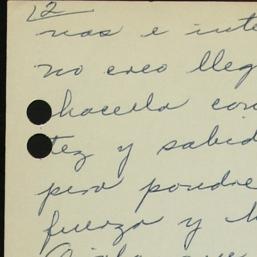 2
nas e inte
no creo lleg
hacerla con
tez y sabid
pero pondre
fuerza y